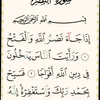 سورة النصر
بسم الله الرحمن الرحيم
إذا جاء نصر الله والفتح
ورأيت الناس يدخلون
في دين الله أفواجا فسبح
بحمد ربك واستغفره إنه